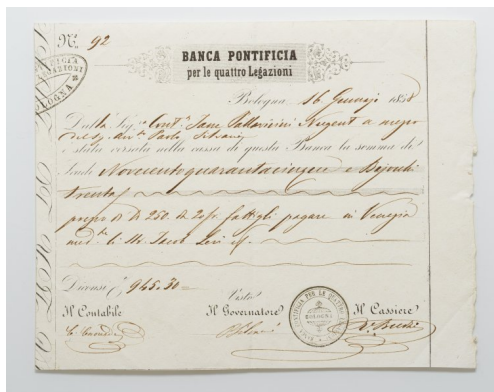 N.º 92
BANCA PONTIFICIA
per le quattro Legazioni
BOLOGNA
Bologna 16 Gennajo 1858
Dalla Sig.ª Cont.ª Jane Pallavicini Nugent a mezzo
del Sig. Avv.to Paolo Silvani
è stata versata nella cassa di questa Banca la somma di
Scudi Novecentoquarantacinque e Bajocchi
trenta
prezzo di 250 da 20 f. fattigli pagare in Venezia
med.te li Jacob Levi
Diconsi 945.30
Visto
Il Contabile Il Governatore Il Cassiere
BANCA PONTIFICIA PER LE QUATTRO LEGAZIONI
BOLOGNA